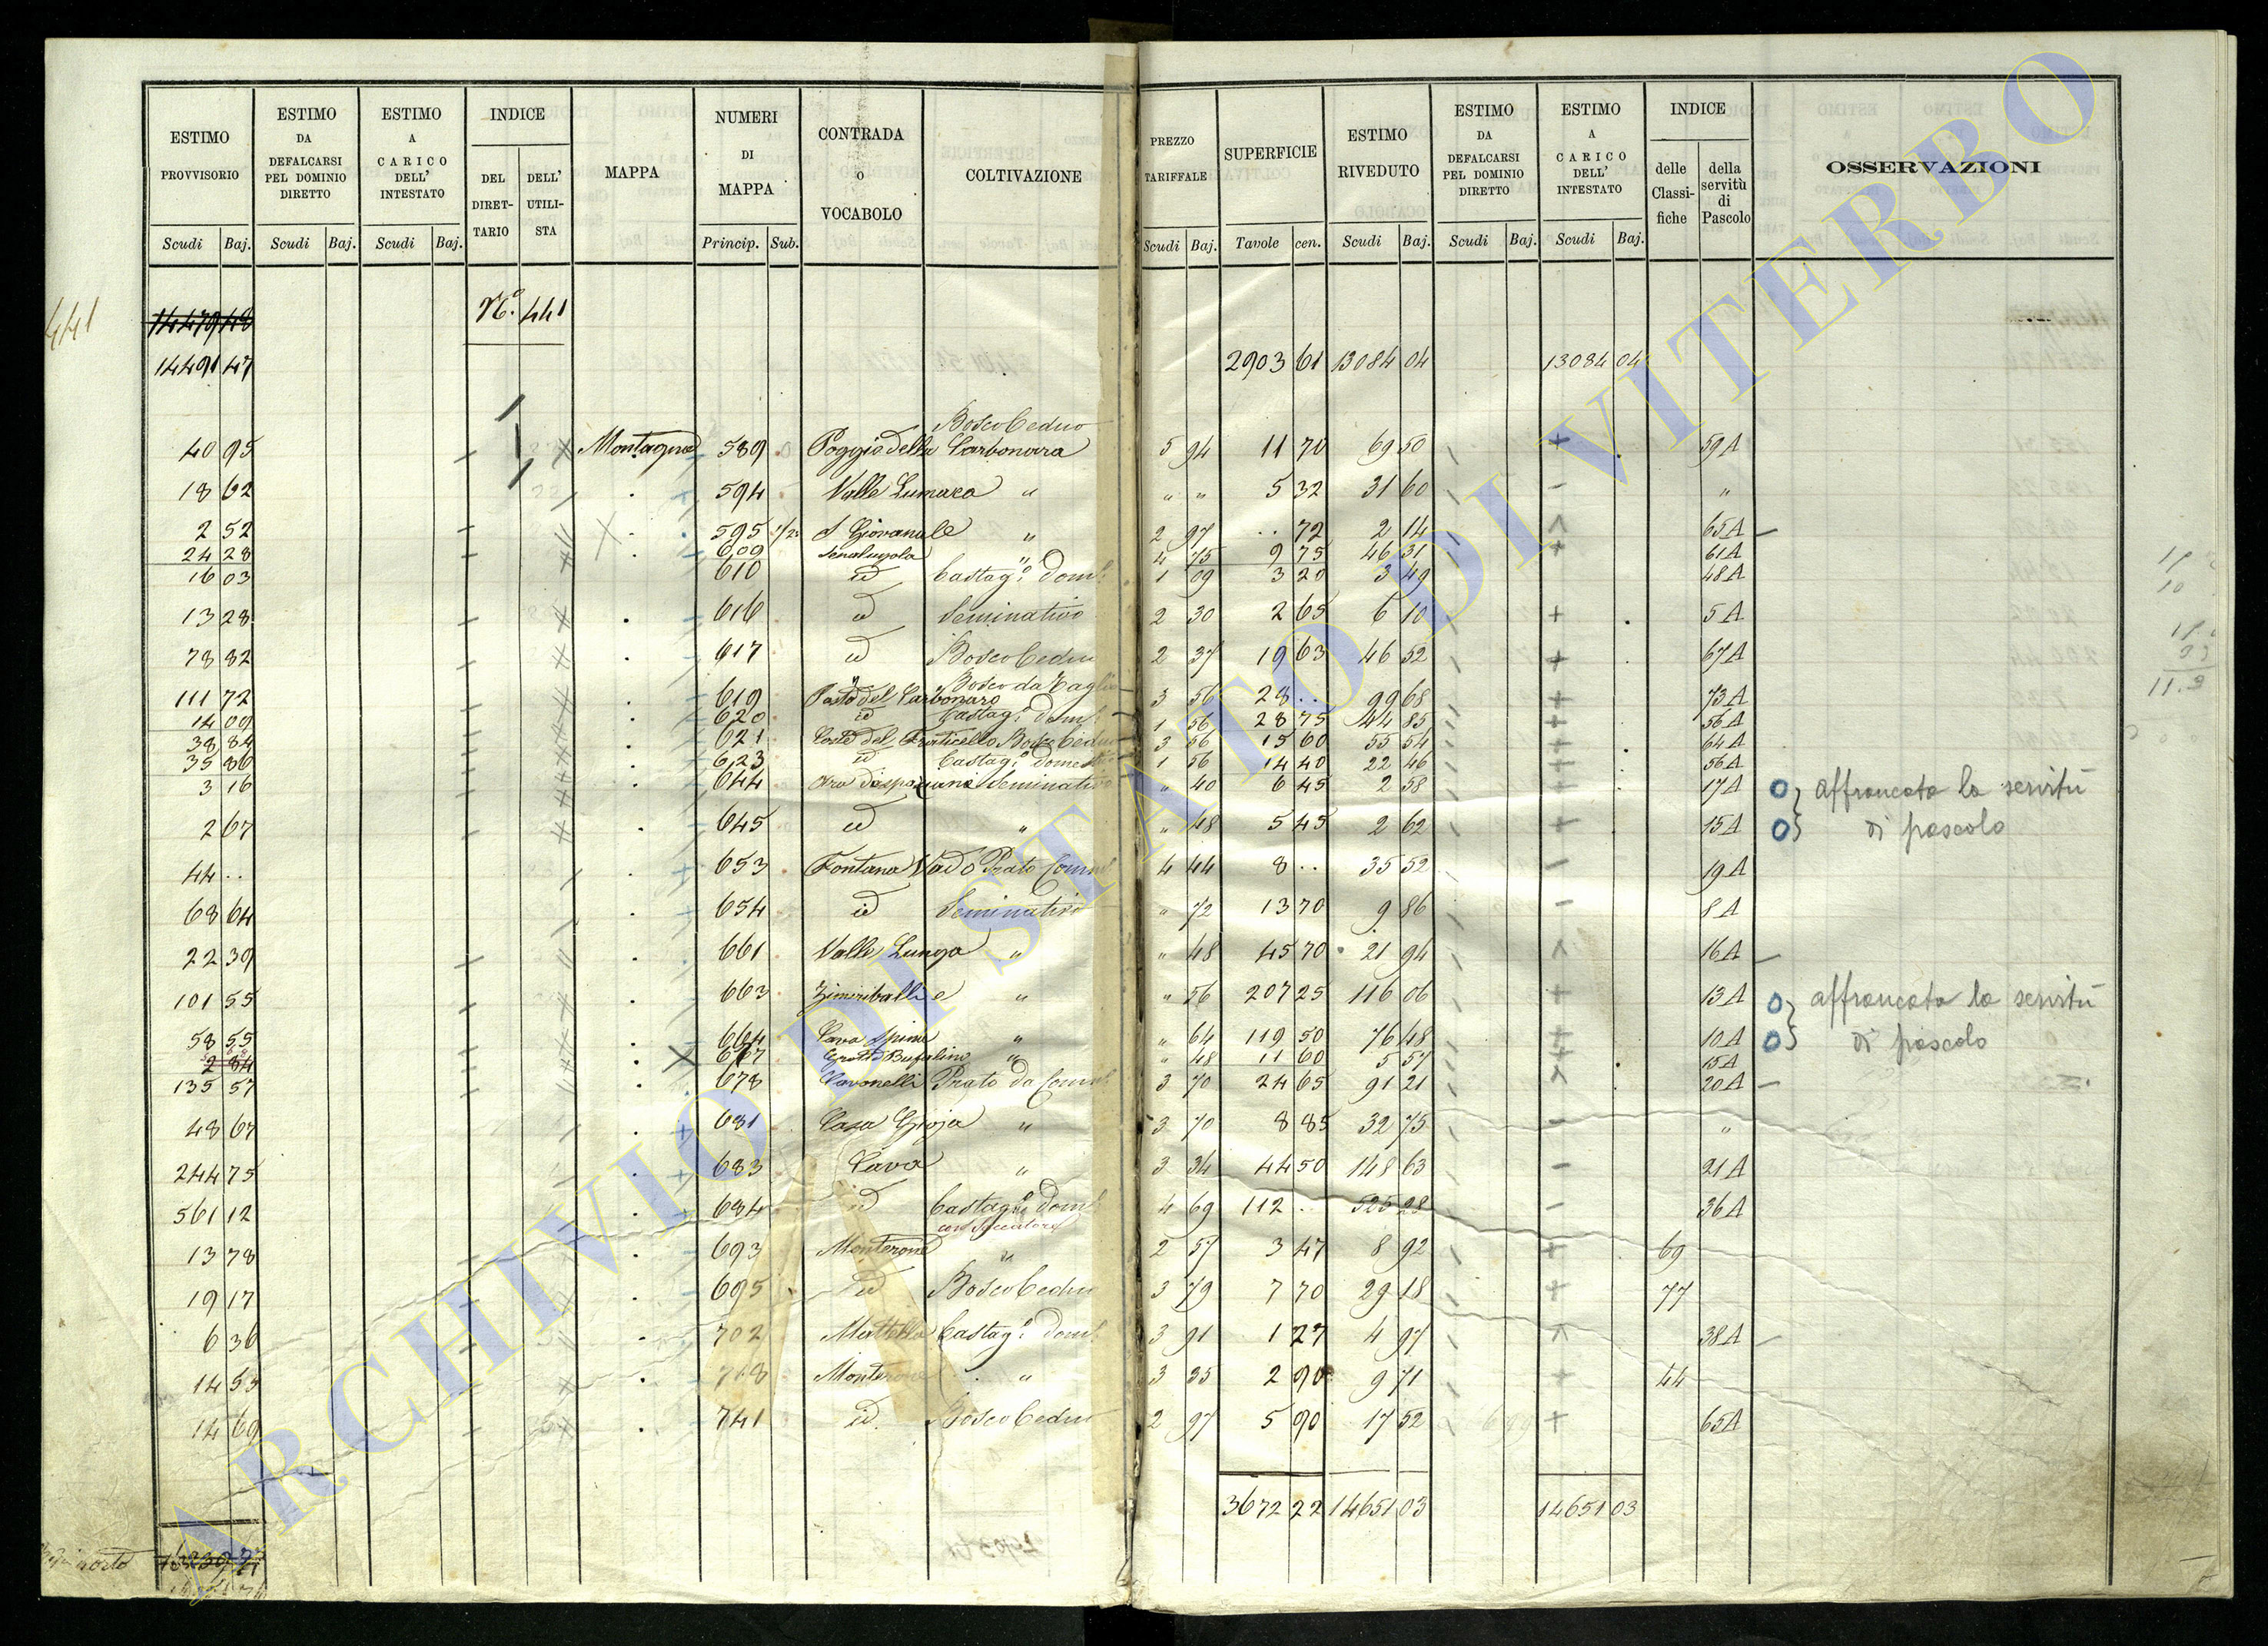 ESTIMO PROVVISORIO Scudi Baj.
ESTIMO DA DEFALCARSI PEL DOMINIO DIRETTO Scudi Baj.
ESTIMO A CARICO DELL' INTESTATO Scudi Baj.
INDICE DEL DIRETTARIO DELL' UTILISTA
MAPPA
NUMERI DI MAPPA Princip. Sub.
CONTRADA O VOCABOLO
COLTIVAZIONE
PREZZO TARIFFALE Scudi Baj.
SUPERFICIE Tavole cen.
ESTIMO RIVEDUTO Scudi Baj.
ESTIMO DA DEFALCARSI PEL DOMINIO DIRETTO Scudi Baj.
ESTIMO A CARICO DELL' INTESTATO Scudi Baj.
INDICE delle Classifiche della servitù di Pascolo
OSSERVAZIONI
441
14479 48 N.º 441
14491 47 2903 61 13084 04 13084 04
40 95 Montagna 589 Poggio della Carbonara Bosco Ceduo 5 94 11 70 69 50 59A
18 62 594 Valle Lumaca " " " 5 32 31 60 "
2 52 595 1/2 S Giovenale " 2 97 .. 72 2 14 65A
24 28 609 " 4 75 9 75 46 31 61A
16 03 610 id Castag.º Dom. 1 09 3 20 3 49 48A
13 28 616 id Seminativo 2 30 2 65 6 10 5A
78 82 617 id Bosco Ceduo 2 37 19 63 46 52 67A
111 72 619 Posto del Carbonaro Bosco da Taglio 3 56 28 .. 99 68 73A
14 09 620 id Castag.º Dom. 1 56 28 75 44 85 56A
38 84 621 Coste del Fraticello Bosco Ceduo 3 56 15 60 55 54 64A
35 86 623 id Castag.º Domes 1 56 14 40 22 46 56A
3 16 644 Seminativo " 40 6 45 2 58 17A affrancata la servitù
2 67 645 id " " 48 5 45 2 62 15A di pascolo
44 .. 653 Fontana Vado Prato 4 44 8 .. 35 52 19A
68 64 654 id Seminativo " 72 13 70 9 86 8A
22 39 661 Valle Lunga " " 48 45 70 21 94 16A
101 55 663 " " 56 207 25 116 06 13A affrancata la servitù
58 55 664 Cava Spina " " 64 119 50 76 48 10A di pascolo
2 84 667 Grotta Bufalino " " 48 11 60 5 57 15A
135 57 678 Cavonelli Prato da 3 70 24 65 91 21 20A
48 67 681 Casa Gioja " 3 70 8 85 32 75 "
244 75 683 Cava " 3 34 44 50 148 63 21A
561 12 684 id Castag.º Dom. 4 69 112 .. 525 28 36A
13 78 693 Monterone " 2 57 3 47 8 92 69
19 17 695 id Bosco Ceduo 3 79 7 70 29 18 77
6 36 702 Mattella Castag.º Dom. 3 91 1 27 4 97 38A
14 53 Monterone " 3 35 2 90 9 71 44
14 69 741 id Bosco Ceduo 2 97 5 90 17 52 65A
3672 22 14651 03 14651 03
ARCHIVIO DI STATO DI VITERBO